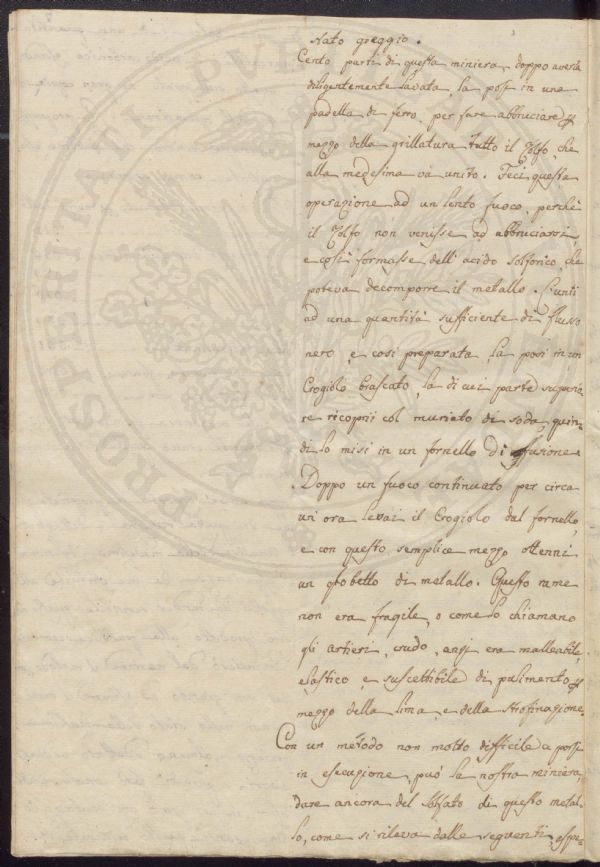 nato greggio.
Cento parti di questa miniera, doppo averla
diligentemente lavata, la posi in una
padella di ferro, per fare abbruciare p
mezzo della grillatura tutto il Zolfo, che
alla medesima và unito. Feci questa
operazione ad un lento fuoco, perchè
il Zolfo non venisse ad abbruciarsi,
e così formasse dell'acido solforico, che
poteva decomporre il metallo. Giunti
ad una quantità sufficiente di flusso
nero, e così preparata, la posi in un
Crogiolo brascato, la di cui parte superio-
re ricoprii col muriato di soda, quin-
di lo misi in un fornello di fusione.
Doppo un fuoco continuato per circa
un'ora levai il Crogiolo dal fornello,
e con questo semplice mezzo ottenni
un globetto di metallo. Questo rame
non era fragile, o come lo chiamano
gli artieri, crudo, anzi era malleabile,
elastico, e suscettibile di pulimento p
mezzo della lima, e della strofinazione.
Con un metodo non molto difficile a porsi
in esecuzione, può la nostra miniera,
dare ancora del Solfato di questo metal-
lo, come si rileva dalle seguenti espe-
PROSPERITATI PUBLICAE